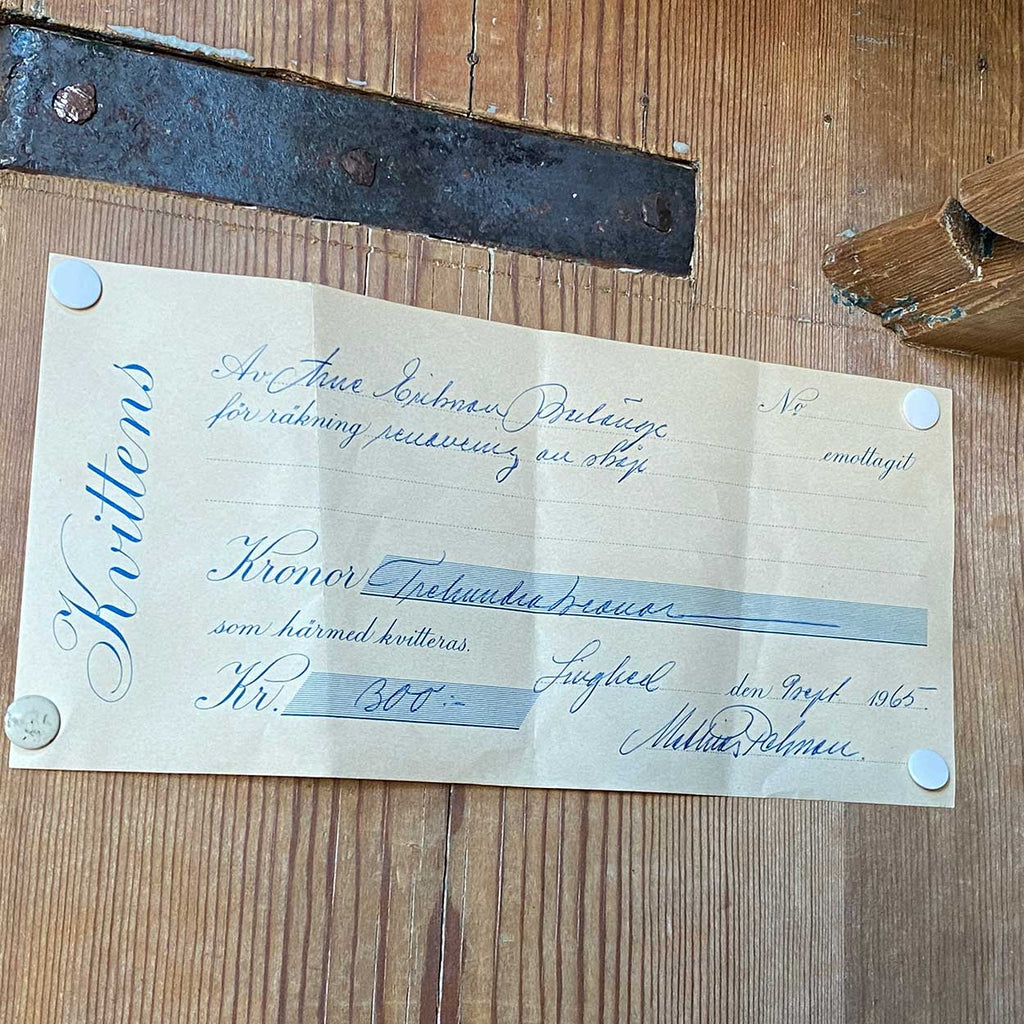 Kvittens
Av Arne Erikson No
för räkning renovering av skåp emottagit
Kronor Trehundra kronor
som härmed kvitteras.
Kr. 300:- Linghed den 9 sept 1965.
Mathias